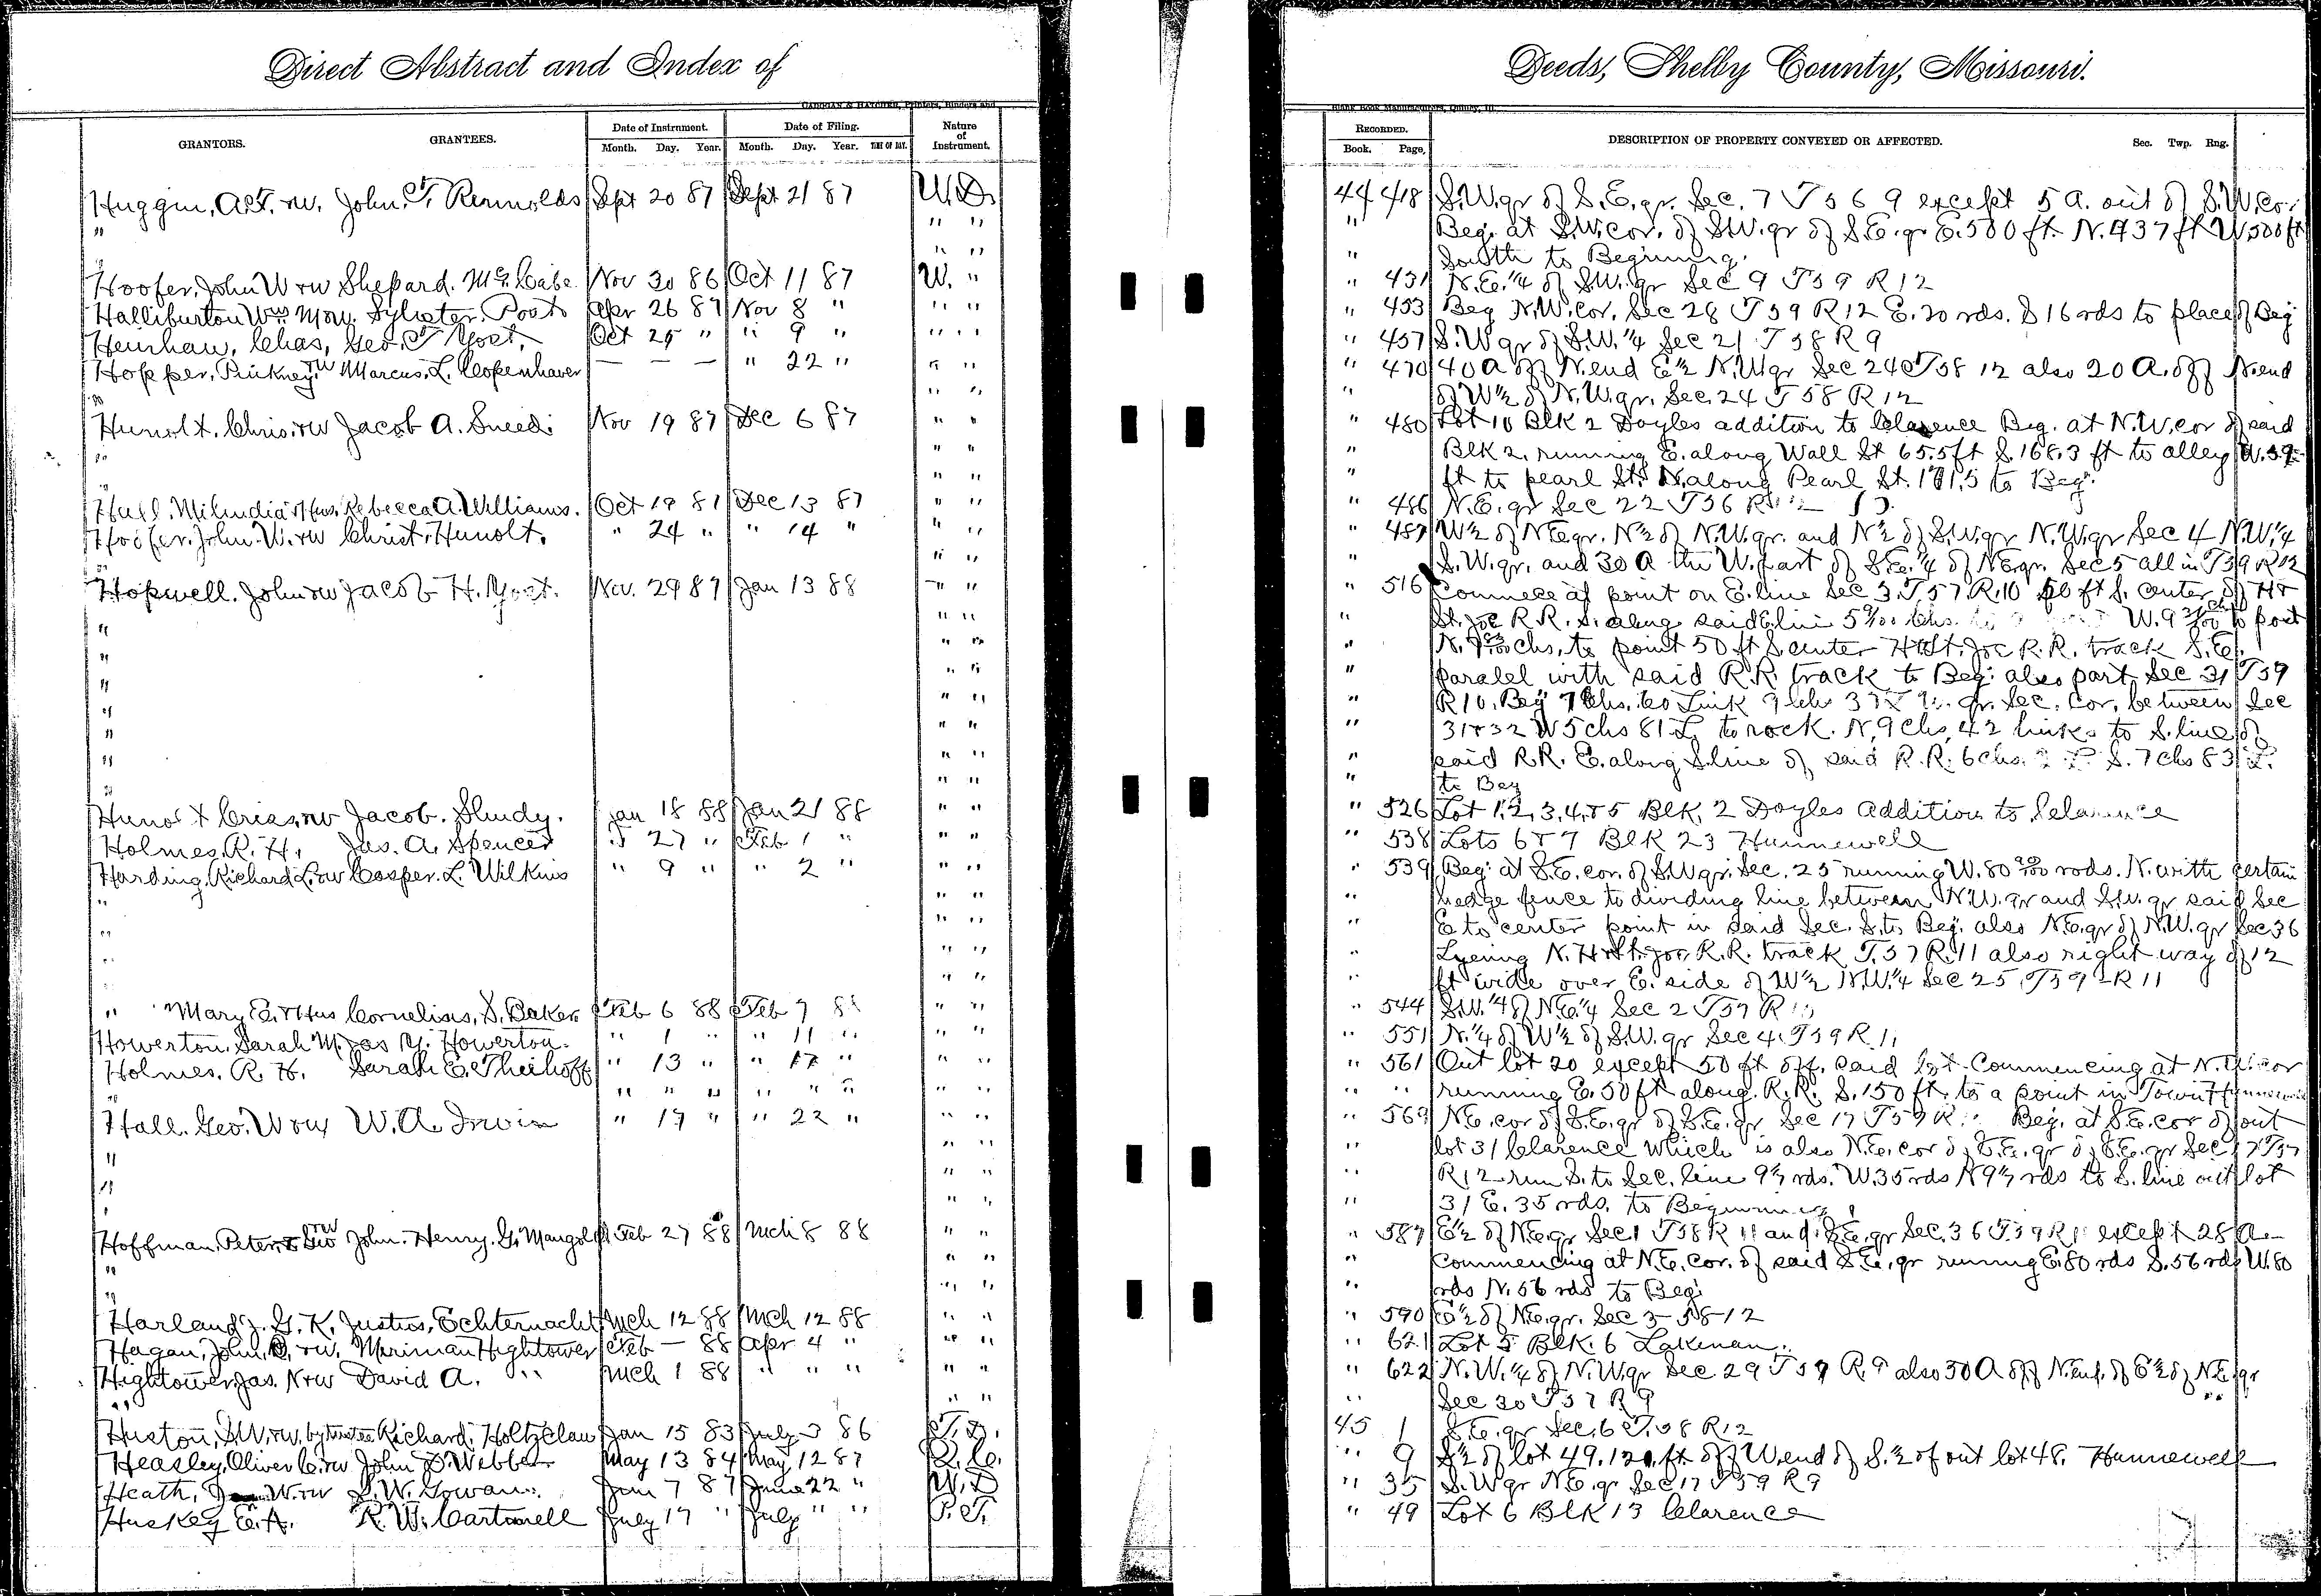 Direct Abstract and Index of
Deeds, Shelby County, Missouri.
CADOGAN & HATCHER, Printers, Binders and
Blank Book Manufacturers, Quincy, Ill.
GRANTORS. GRANTEES. Date of Instrument. Month. Day. Year. Date of Filing. Month. Day. Year. TIME OF DAY. Nature of Instrument.
RECORDED. Book. Page. DESCRIPTION OF PROPERTY CONVEYED OR AFFECTED. Sec. Twp. Rng.
Huggin, A.T. rw. John. T. Rennolds Sept 20 87 Sept 21 87 W.D. 44 418 S.W.qr of S.E.qr. Sec. 7 T56 9 except 5 A. out of S.W.cor.
" " " " Beg. at S.W.cor. of S.W.qr of S.E.qr E.500 ft. N. 437 ft W 500 ft
" " " " South to Beginning.
Hoofer, John W rw Shepard. McCabe Nov 30 86 Oct 11 87 W. " " 431 N.E.1/4 of S.W.qr Sec 9 T59 R12
Halliburton Wm M rw. Sylvster. Posts Apr 26 87 Nov 8 " " " " 453 Beg N.W.cor. Sec 28 T59 R12 E. 20 rds. S 16 rds to place of Beg
Henshaw, Chas, Geo. T Yost. Oct 25 " " 9 " " " " 457 S.W qr of S.W.1/4 Sec 21 T58 R9
Hopper, Pinkney rw Marcus. L. Copenhaver — — — " 22 " " " " 470 40 A off N.end E1/2 N.W qr Sec 24 T58 12 also 20 A. off N.end
" " " " of W1/2 of N.W.qr. Sec. 24 T58 R12
Hunolt. Chris. rw Jacob A. Sneed. Nov 19 87 Dec 6 87 " " " 480 Lot 10 Blk 2 Doyles addition to Clarence Beg. at N.W.cor of said
" " " " Blk 2. running E. along Wall St 65.5 ft S. 168.3 ft to alley W.
" " " " ft to pearl St. N. along Pearl St. 171.5 to Beg.
Hall. Milindia & Hus. Rebecca A. Williams. Oct 19 81 Dec 13 87 " " " 486 N.E. qr Sec 22 T56
Hoofer. John. W. rw Christ. Hunolt. " 24 " " 14 " " " " 487 W1/2 of N.E.qr. N1/2 of N.W.qr. and N1/2 of S.W.qr N.W.qr Sec 4 N.W.1/4
" " " S.W.qr. and 30 A the W. part of S.E.1/4 of N.E.qr. Sec 5 all in T59 R12
Hopewell. John rw Jacob H. Yost. Nov. 29 87 Jan 13 88 " " " 516 Commece at point on E. line Sec 3. T.57. R.10 50 ft S. center of H&
" " " St. Joe R R. S. along said E. line W. to point
" " " " N. chs. to point 50 ft S. center H & St. Joe R.R. track S.E.
" " " " paralel with said R.R. track to Beg. also part Sec 31 T59
" " " " R10. Beg 7 Chs. 60 Link qr. Sec. Cor. between Sec
" " " " 31 & 32 W 5 chs 81 L to rock. N. 9 chs. 42 links to S. line of
" " " " said R.R. E. along S. line of said R.R. 6 chs. S. 7 chs 83 L.
" " " " to Beg
Hunolt Crias, rw Jacob. Shudy. Jan 18 88 Jan 21 88 " " " 526 Lot 1, 2, 3, 4, & 5 Blk, 2 Doyles Addition to Clarence
Holmes. R. H. Jas. A. Spencer " 27 " Feb 1 " " " " 538 Lots 6 & 7 Blk 23 Hunnewell
Harding, Richard L. rw Casper. L. Wilkins " 9 " " 2 " " " " 539 Beg. at S.E. cor. of S.W qr. Sec. 25 running W. 80 rods. N. with certain
" " " " hedge fence to dividing line between N.W. qr and S.W. qr said Sec
" " " " E to center point in said Sec. S. to Beg. also N.E.qr of N.W. qr Sec 36
" " " " Lyeing N. H & St. Joe R.R. track T.57 R.11 also right way of 12
" " " ft wide over E. side of W1/2 N.W.1/4 Sec 25 T59 R11
" Mary E. & Hus Cornelius, S. Baker Feb 6 88 Feb 7 88 " " " 544 S.W.1/4 of N.E.1/4 Sec 2 T57
Howerton. Sarah M. Howerton. " 1 " " 11 " " " " 551 N.1/4 of W1/2 of S.W. qr Sec 4. T59 R. 11
Holmes. R. H. Sarah E. Theihoff " 13 " " 17 " " " " 561 Out lot 20 except 50 ft off. said lot. Commencing at N.W. cor
" " " " " " " " " " " running E. 50 ft along. R.R. S. 150 ft. to a point in Town Hunnewell
Hall. Geo. W rw W. A. Irwin " 17 " " 22 " " " " 569 N.E. cor of S.E. qr of S.E. qr Sec 17 T59 Beg. at S.E. cor of out
" " " " lot 31 Clarence which is also N.E. cor of S.E. qr of S.E. qr Sec 17 T57
" " " " R12 run S. to Sec. line rds. W. 35 rds N rds to S. line out lot
" " " 31 E. 35 rds. to Beginning
Hoffman, Peter John. Henry. G. Mangold Feb 27 88 Mch 8 88 " " " 587 E1/2 of N.E. qr Sec 1 T58 R 11 and S.E. qr Sec. 36 T.59 R 11 except 28 A
" " " " Commencing at N.E. cor. of said S.E. qr running E. 80 rds S. 56 rds W. 80
" " " " rds N. 56 rds to Beg.
Harland, J. G. K. Justus, Echternacht Mch 12 88 Mch 12 88 " " " 590 E1/2 of N.E. qr. Sec 3-58-12
Hagan, John, rw. Meriman Hightower Feb — 88 Apr 4 " " " " 621 Lot 5 Blk. 6 Lakenan.
Hightower, Jas. N rw David A. " Mch 1 88 " " " " " " 622 N.W.1/4 of N.W qr Sec 29 T57 R9 also 30 A off N. end of E1/2 of N.E. qr
" " " " Sec 30 T57 R9 "
Huston, S.W. rw. by trustee Richard. Holtzclaw Jan 15 83 July 3 86 T.D. 45 1 S.E. qr Sec. 6 T.58 R12
Heasley, Oliver C. rw John D. Webber May 13 84 May 12 87 Q.C. " 9 S1/2 of lot 49. 120. ft off W. end of S.1/2 of out lot 48. Hunnewell
Heath, W rw S. W. Gowan. Jan 7 87 June 22 " W.D " 35 S.W qr N.E. qr Sec 17 T59 R9
Huskey E. A. R. W. Cartmell July 19 " July " " " 49 Lot 6 Blk 13 Clarence
17